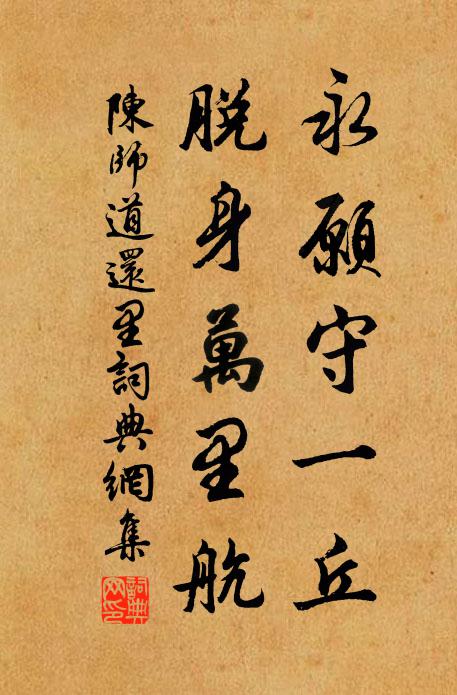 永願守一丘
脱身萬里航
陳師道還里詞典網集
詞典网印